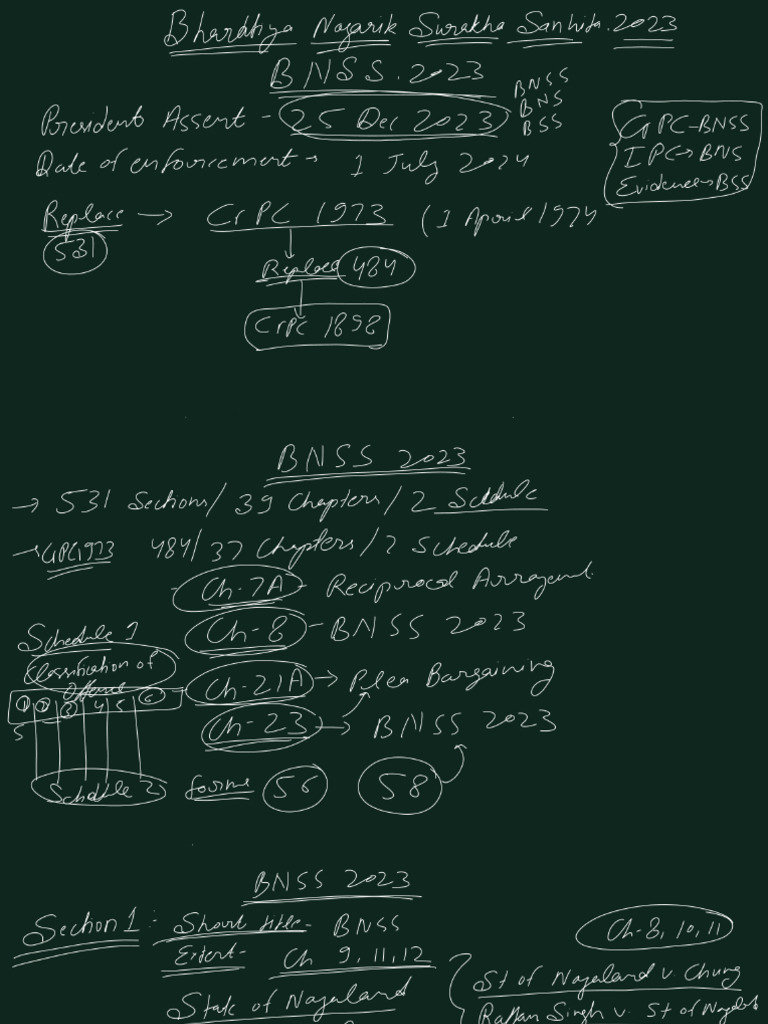 Bharatiya Nagarik Surakha Sanhita. 2023
BNSS. 2023
BNSS
BNS
BSS
President Assent - 25 Dec 2023
CrPC-BNSS
IPC→BNS
Evidence→BSS
Date of enforcement → 1 July 2024
Replace → CrPC 1973 (1 April 1974
531
Replace 484
CrPC 1898
BNSS 2023
→ 531 Sections/ 39 Chapters/ 2 Schedule
→ CrPC1973 484/ 37 Chapters/ 2 Schedule
Ch-7A - Reciprocal
Ch-8 - BNSS 2023
Schedule 1
Classification of
Offence
1 2 3 4 5 6
5
Ch-21A → Plea Bargaining
Ch-23 → BNSS 2023
Schedule 2 forms 56 58
BNSS 2023
Section 1:- Short title - BNSS
Ch-8, 10, 11
Extent - Ch 9, 11, 12
State of Nagaland
St of Nagaland v. Chung
Rattan Singh v. St of